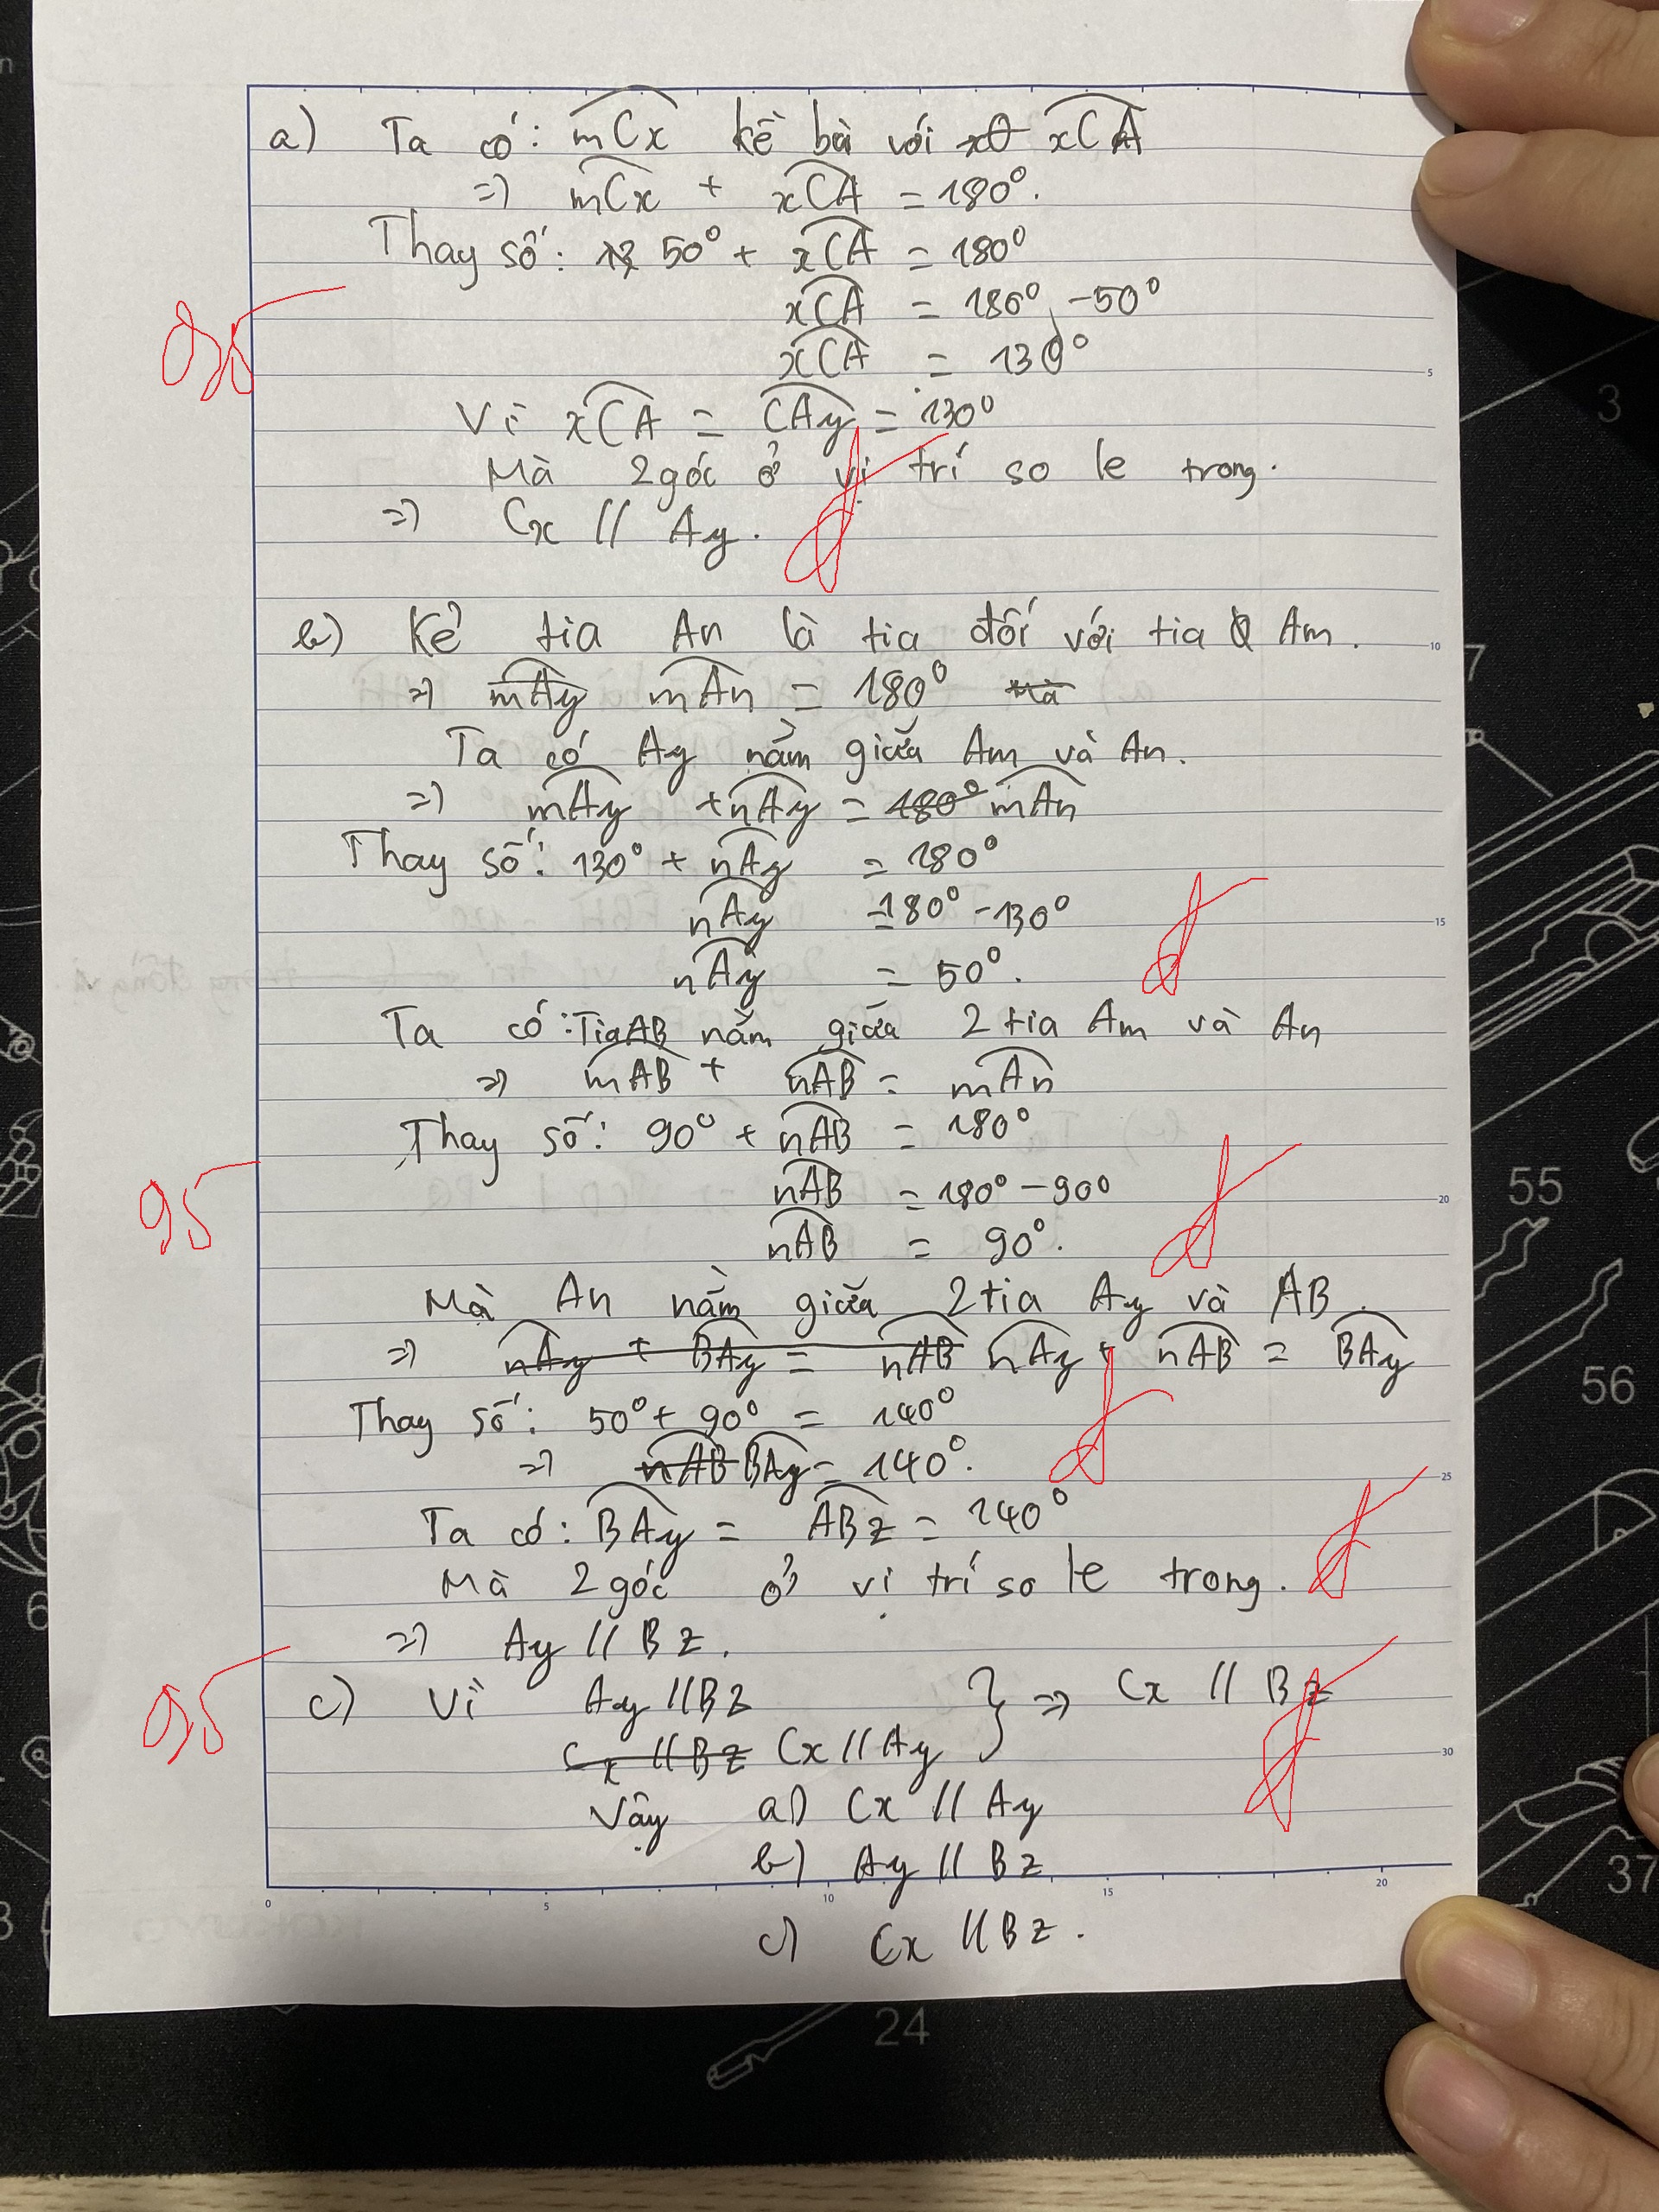 a) Ta có: mCx kề bù với xCA
=> mCx + xCA = 180°.
Thay số: 50° + xCA = 180°
xCA = 180° - 50°
0,5
xCA = 130°
Vì xCA = CAy = 130°
Mà 2 góc ở vị trí so le trong.
=> Cx // Ay.
đ
b) Kẻ tia An là tia đối với tia Am.
=> mAy mAn = 180° Mà
Ta có Ay nằm giữa Am và An.
=> mAy + nAy = 180° mAn
Thay số: 130° + nAy = 180°
nAy = 180° - 130°
đ
nAy = 50°.
Ta có: Tia AB nằm giữa 2 tia Am và An
=> mAB + nAB = mAn
Thay số: 90° + nAB = 180°
nAB = 180° - 90°
0,5
đ
nAB = 90°.
Mà An nằm giữa 2 tia Ay và AB.
=> nAy + BAy = nAB nAy + nAB = BAy
Thay số: 50° + 90° = 140°
đ
=> nAB BAy = 140°.
Ta có: BAy = ABz = 140°
Mà 2 góc ở vị trí so le trong.
đ
=> Ay // Bz.
0,5
c) Vì Ay // Bz } => Cx // Bz
Cx // Bz Cx // Ay
đ
Vậy a) Cx // Ay
b) Ay // Bz
c) Cx // Bz.
5
10
15
20
25
30
0 5 10 15 20
3
7
55
56
37
6
24